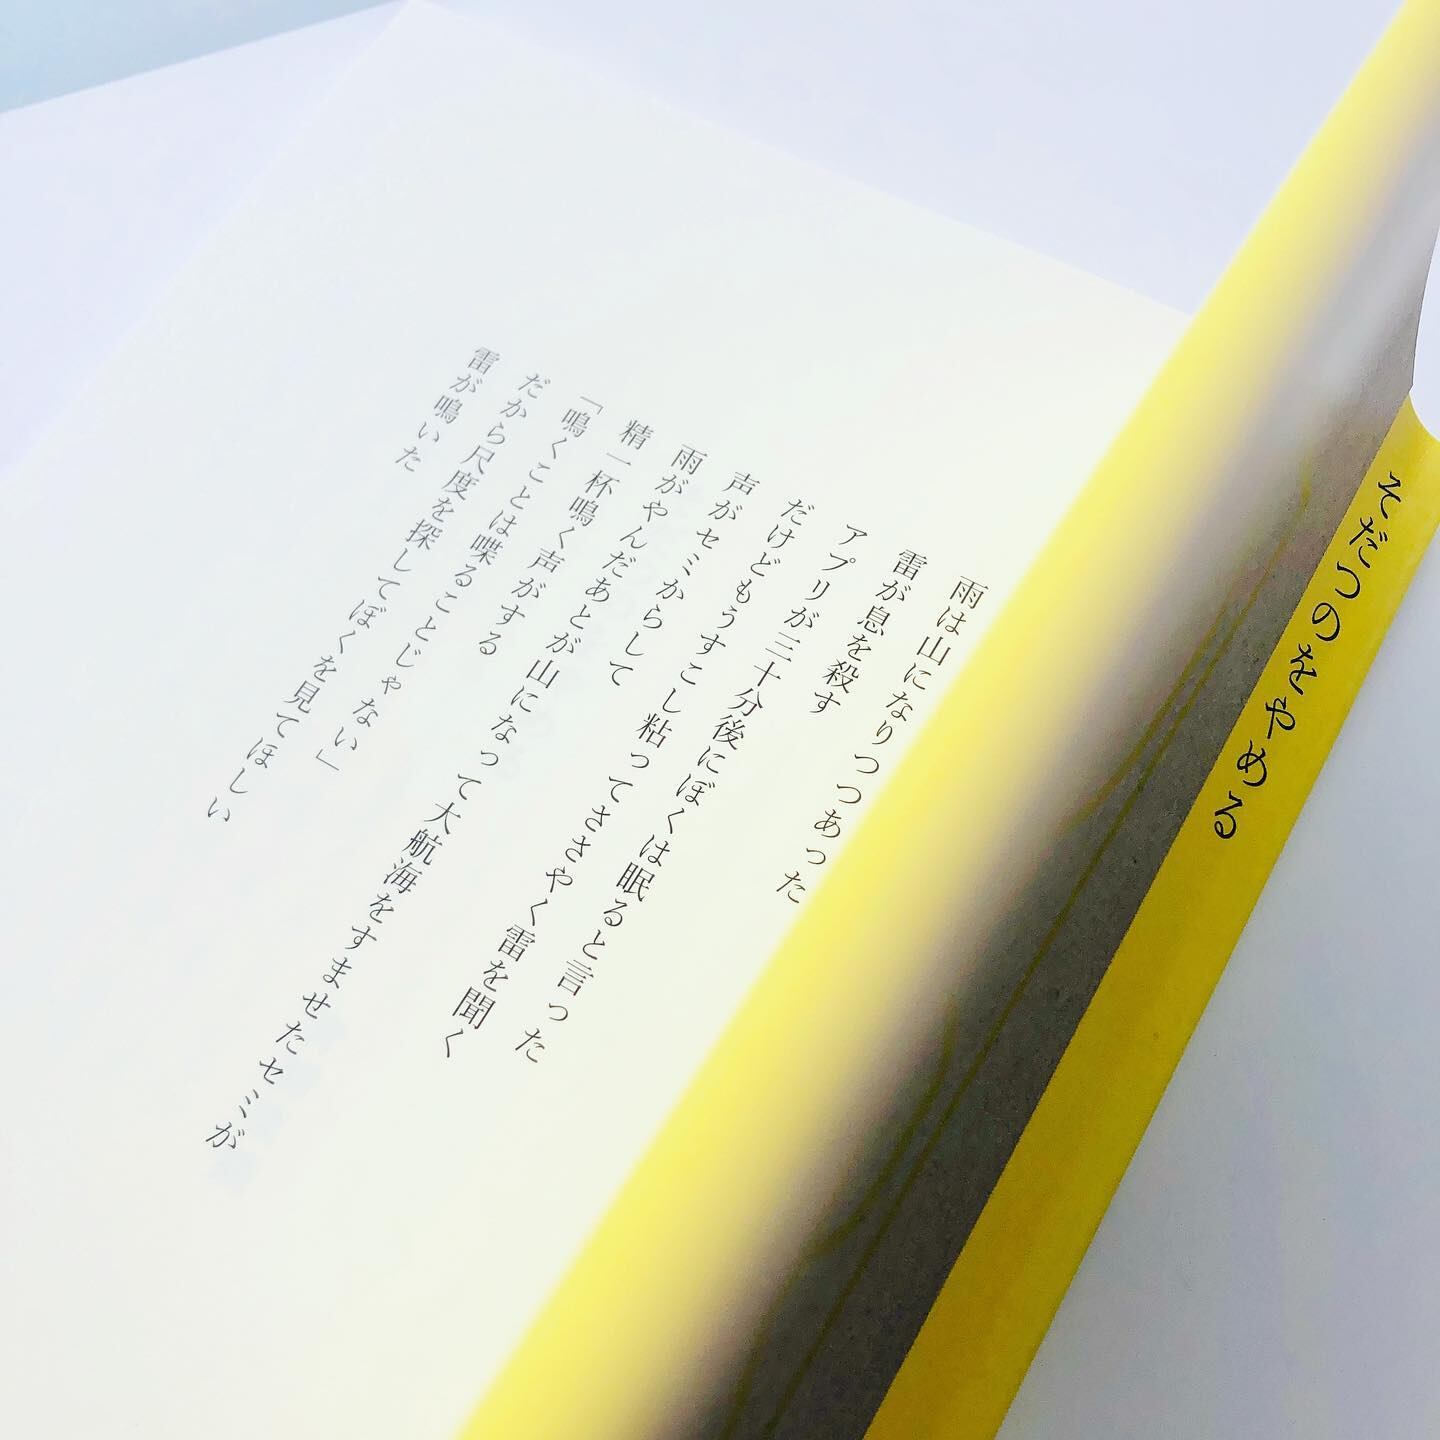 そだつのをやめる
雨は山になりつつあった
雷が息を殺す
アプリが三十分後にぼくは眠ると言った
だけどもうすこし粘ってささやく雷を聞く
声がセミからして
雨がやんだあとが山になって大航海をすませたセミが
精一杯鳴く声がする
「鳴くことは喋ることじゃない」
だから尺度を探してぼくを見てほしい
雷が鳴いた